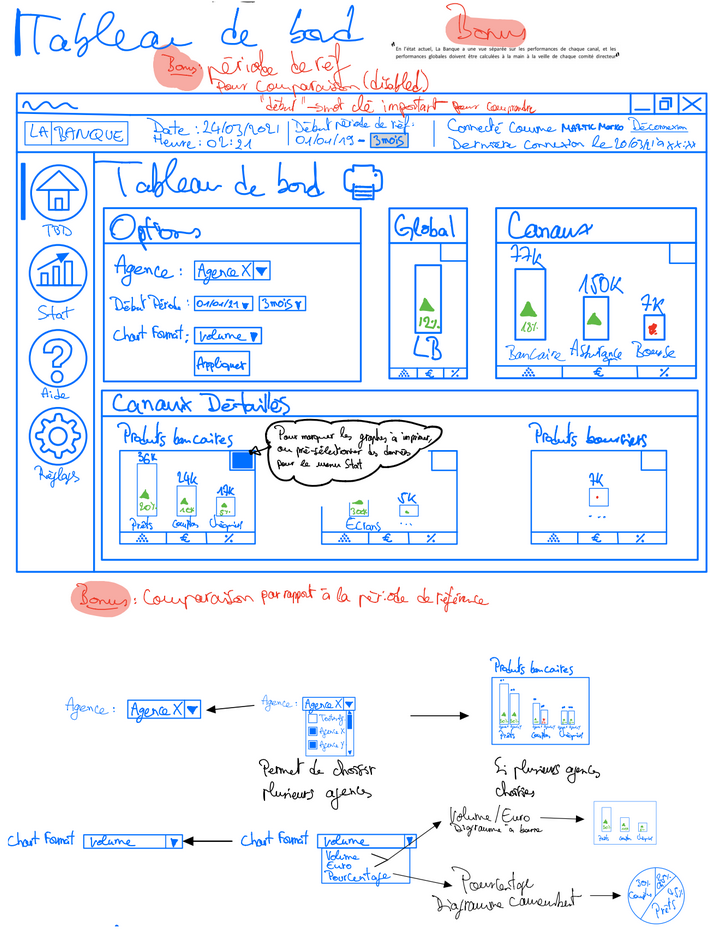 Tableau de bord
Bonus
"En l'état actuel, La Banque a une vue séparée sur les performances de chaque canal, et les
performances globales doivent être calculées à la main à la veille de chaque comité directeur"
Bonus: période de réf
pour comparaison (disabled)
"début" → mot clé important pour comprendre
LA BANQUE
Date : 24/03/2021
Heure : 02:21
Début période de réf:
01/01/19 - 3 mois
Connecté comme Déconnexion
Dernière connexion le 20/03/21 à xx:xx
Tableau de bord
TBD
Stat
Aide
Réglages
Options
Agence : Agence X
Début Période : 01/01/21 3 mois
Chart Format : Volume
Appliquer
Global
12%
LB
€ %
Canaux
77K
150K
7K
18%
Bancaire Assurance Bourse
€ %
Canaux Détaillés
Produits bancaires
36K
24K
17K
20% 10% 5%
Prêts Comptes Chèquier
€ %
Pour marquer les graphes à imprimer,
ou pré-sélectionner les données
pour le menu Stat
5K
300K
Ecrans ...
€ %
Produits boursiers
7K
...
€ %
Bonus : Comparaison par rapport à la période de référence
Agence : Agence X
Agence : Agence X
Agence X
Agence Y
Permet de choisir
plusieurs agences
Produits bancaires
Prêts Comptes Chèquier
Si plusieurs agences
choisies
Chart Format Volume
Chart Format Volume
Volume
Euro
Pourcentage
Volume/Euro
Diagramme à barre
Prêts
Pourcentage
Diagramme camembert
30%
Comptes
25%
45%
Prêts